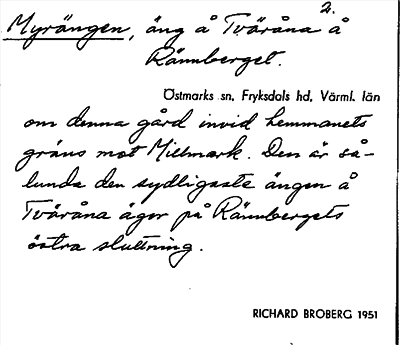 2.
Myrängen, äng å Tväråna å
Rännberget.
Östmarks sn, Fryksdals hd, Värml. län
om denna gård invid hemmanets
gräns mot Millmark. Den är så-
lunda den sydligaste ängen å
Tväråna äger på Rännbergets
östra sluttning.
RICHARD BROBERG 1951